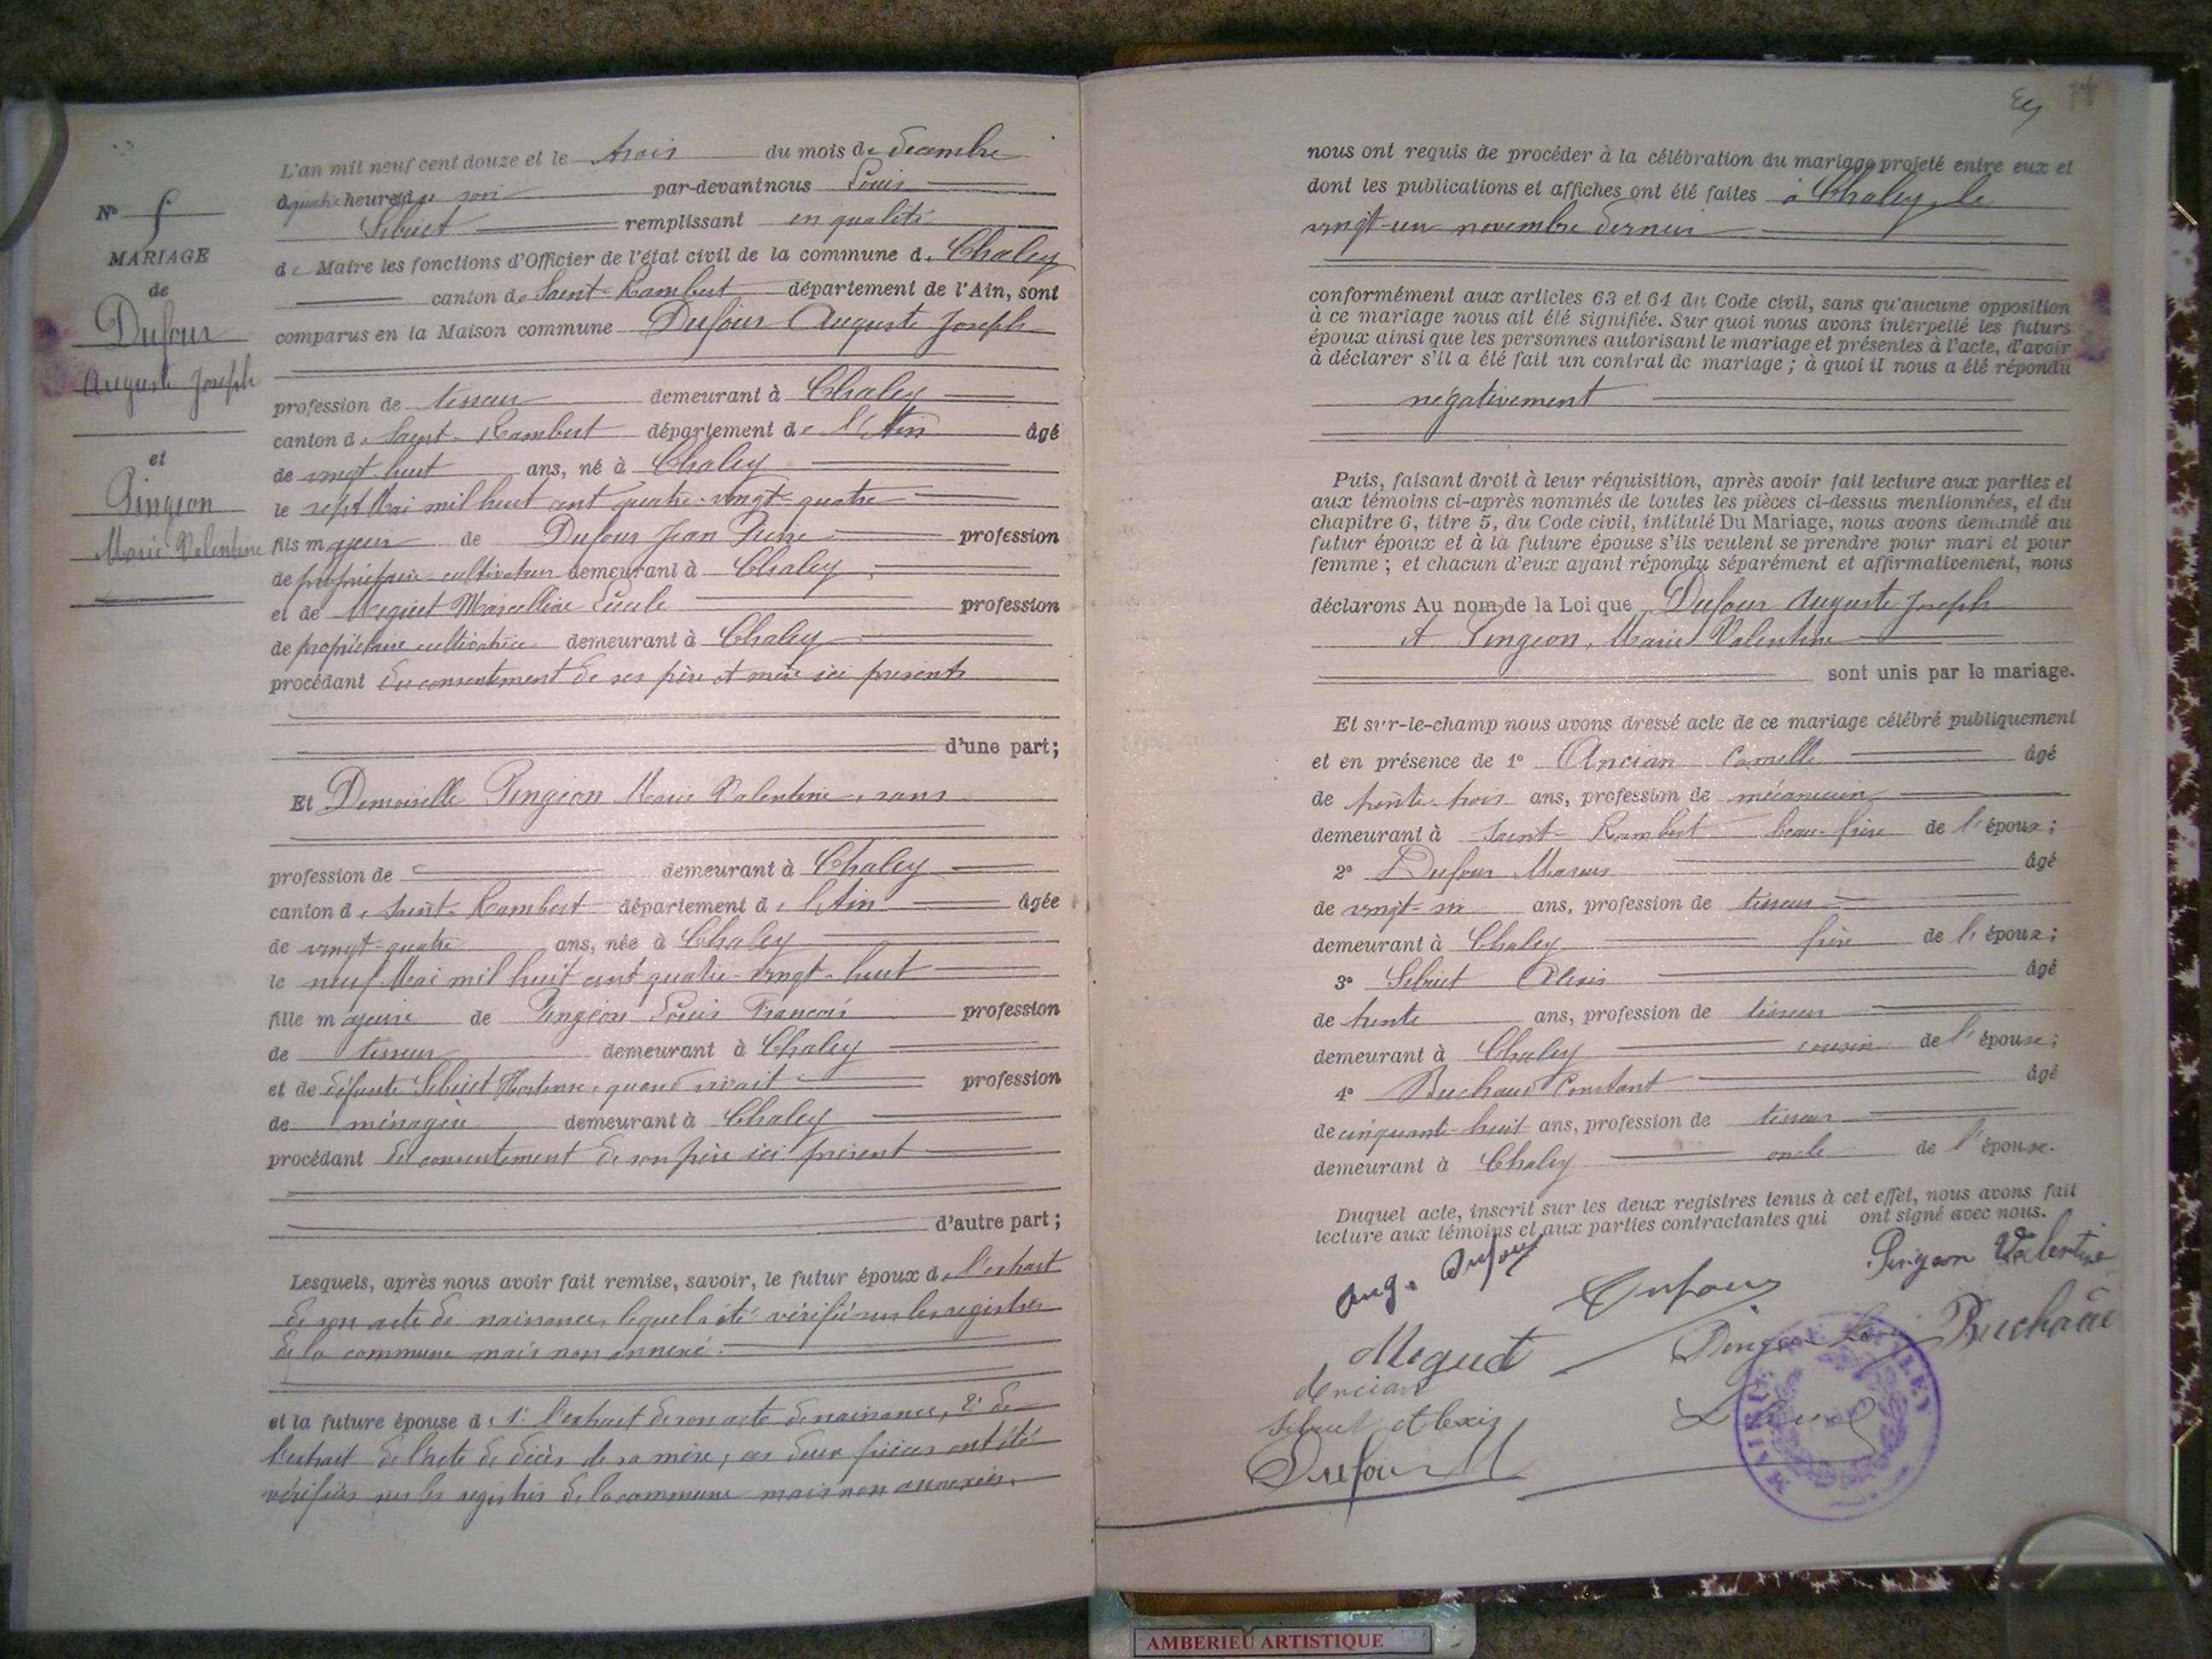 L'an mil neuf cent douze et le trois du mois de décembre
à quatre heures du soir par-devant nous Louis
Sibuet remplissant en qualité
de Maire les fonctions d'Officier de l'état civil de la commune de Chaley
canton de Saint-Rambert département de l'Ain, sont
comparus en la Maison commune Dufour Auguste Joseph
profession de tisseur demeurant à Chaley
canton de Saint-Rambert département de l'Ain âgé
de vingt-huit ans, né à Chaley
le sept Mai mil huit cent quatre-vingt-quatre
fils majeur de Dufour Jean Pierre profession
de propriétaire-cultivateur demeurant à Chaley
et de Meguet Marcelline Lucile profession
de propriétaire cultivatrice demeurant à Chaley
procédant du consentement de ses père et mère ici présents
d'une part;
Et Demoiselle Pingeon Marie Valentine, sans
profession de demeurant à Chaley
canton de Saint-Rambert département de l'Ain âgée
de vingt-quatre ans, née à Chaley
le neuf Mai mil huit cent quatre-vingt-huit
fille majeure de Pingeon Louis François profession
de tisseur demeurant à Chaley
et de défunte Sibuet Hortense, quand vivait profession
de ménagère demeurant à Chaley
procédant du consentement de son père ici présent
d'autre part;
Lesquels, après nous avoir fait remise, savoir, le futur époux de l'extrait
de son acte de naissance, lequel a été vérifié sur les registres
de la commune mais non annexé.
et la future épouse de 1° l'extrait de son acte de naissance, 2° de
l'extrait de l'acte de décès de sa mère, ces deux pièces ont été
vérifiées sur les registres de la commune mais non annexées.
N° 5
MARIAGE
de
Dufour
Auguste Joseph
et
Pingeon
Marie Valentine
nous ont requis de procéder à la célébration du mariage projeté entre eux et
dont les publications et affiches ont été faites à Chaley, le
vingt-un novembre dernier
conformément aux articles 63 et 64 du Code civil, sans qu'aucune opposition
à ce mariage nous ait été signifiée. Sur quoi nous avons interpellé les futurs
époux ainsi que les personnes autorisant le mariage et présentes à l'acte, d'avoir
à déclarer s'il a été fait un contrat de mariage; à quoi il nous a été répondu
négativement
Puis, faisant droit à leur réquisition, après avoir fait lecture aux parties et
aux témoins ci-après nommés de toutes les pièces ci-dessus mentionnées, et du
chapitre 6, titre 5, du Code civil, intitulé Du Mariage, nous avons demandé au
futur époux et à la future épouse s'ils veulent se prendre pour mari et pour
femme; et chacun d'eux ayant répondu séparément et affirmativement, nous
déclarons Au nom de la Loi que Dufour Auguste Joseph
et Pingeon, Marie Valentine
sont unis par le mariage.
Et sur-le-champ nous avons dressé acte de ce mariage célébré publiquement
et en présence de 1° Ancian Camille âgé
de trente-trois ans, profession de mécanicien
demeurant à Saint-Rambert beau-frère de l'époux;
2° Dufour Marius âgé
de vingt-six ans, profession de tisseur
demeurant à Chaley frère de l'époux;
3° Sibuet Alexis âgé
de trente ans, profession de tisseur
demeurant à Chaley cousin de l'épouse;
4° Buchaud Constant âgé
de cinquante-huit ans, profession de tisseur
demeurant à Chaley oncle de l'épouse.
Duquel acte, inscrit sur les deux registres tenus à cet effet, nous avons fait
lecture aux témoins et aux parties contractantes qui ont signé avec nous.
Aug. Dufour
Dufour
Pingeon Valentine
Meguet
Pingeon Louis
Buchaud
Ancian
Sibuet Alexis
Dufour M
MAIRIE DE CHALEY
AMBERIEU ARTISTIQUE